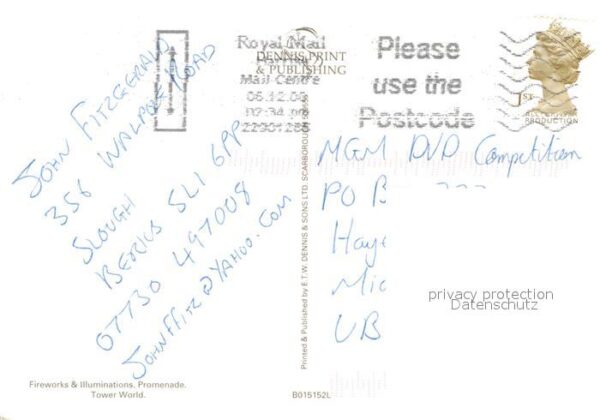 Royal Mail
Mail Centre
DENNIS PRINT
& PUBLISHING
Please
use the
Postcode
1ST
JOHN FITZGERALD
356 WALPOLE ROAD
SLOUGH
BERKS SL1 6PP
07730 497008
JOHNFFITZ@YAHOO.COM
MGM DVD Competition
PO B
Haye
Mic
UB
privacy protection
Datenschutz
Printed & Published by E.T.W. DENNIS & SONS LTD, SCARBOROUGH
Fireworks & Illuminations, Promenade.
Tower World.
B015152L